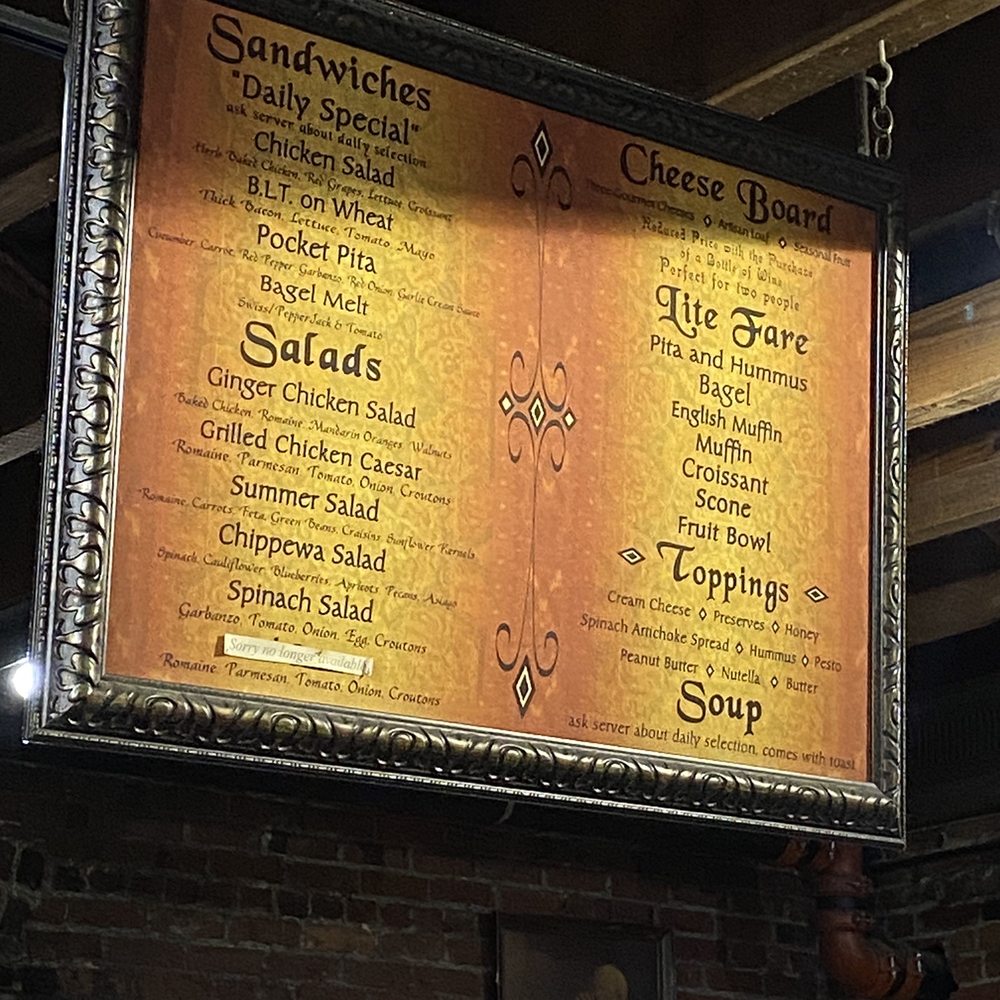 Sandwiches
"Daily Special"
ask server about daily selection
Chicken Salad
Herb Baked Chicken, Red Grapes, Lettuce, Croissant
B.L.T. on Wheat
Thick Bacon, Lettuce, Tomato, Mayo
Pocket Pita
Cucumber, Carrot, Red Pepper, Garbanzo, Red Onion, Garlic Cream Sauce
Bagel Melt
Swiss/PepperJack & Tomato
Salads
Ginger Chicken Salad
Baked Chicken, Romaine, Mandarin Oranges, Walnuts
Grilled Chicken Caesar
Romaine, Parmesan, Tomato, Onion, Croutons
Summer Salad
Romaine, Carrots, Feta, Green Beans, Craisins, Sunflower Kernels
Chippewa Salad
Spinach, Cauliflower, Blueberries, Apricots, Pecans, Asiago
Spinach Salad
Garbanzo, Tomato, Onion, Egg, Croutons
Sorry no longer available
Romaine, Parmesan, Tomato, Onion, Croutons
Cheese Board
Gourmet Cheeses ◇ Artisan Loaf ◇ Seasonal Fruit
Reduced Price with the Purchase
of a Bottle of Wine
Perfect for two people
Lite Fare
Pita and Hummus
Bagel
English Muffin
Muffin
Croissant
Scone
Fruit Bowl
Toppings
Cream Cheese ◇ Preserves ◇ Honey
Spinach Artichoke Spread ◇ Hummus ◇ Pesto
Peanut Butter ◇ Nutella ◇ Butter
Soup
ask server about daily selection, comes with toast